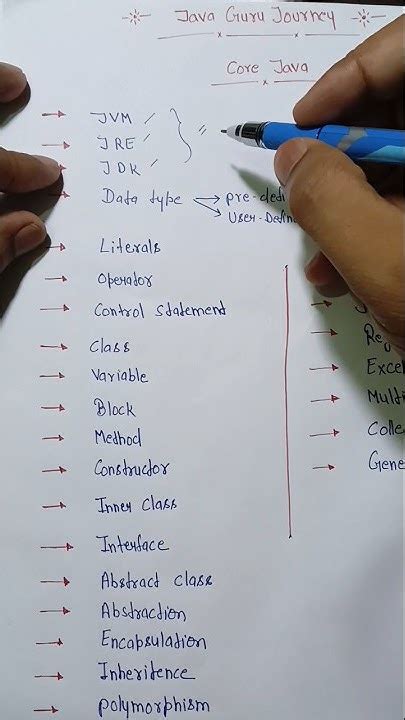 Java Guru Journey
Core Java
JVM
JRE
JDK
Data type → pre-defi
User-Defin
Literals
Operator
Control Statement
Class
Variable
Block
Method
Constructor
Inner Class
Interface
Abstract class
Abstraction
Encapsulation
Inheritence
polymorphism
Multi
Colle
Gene